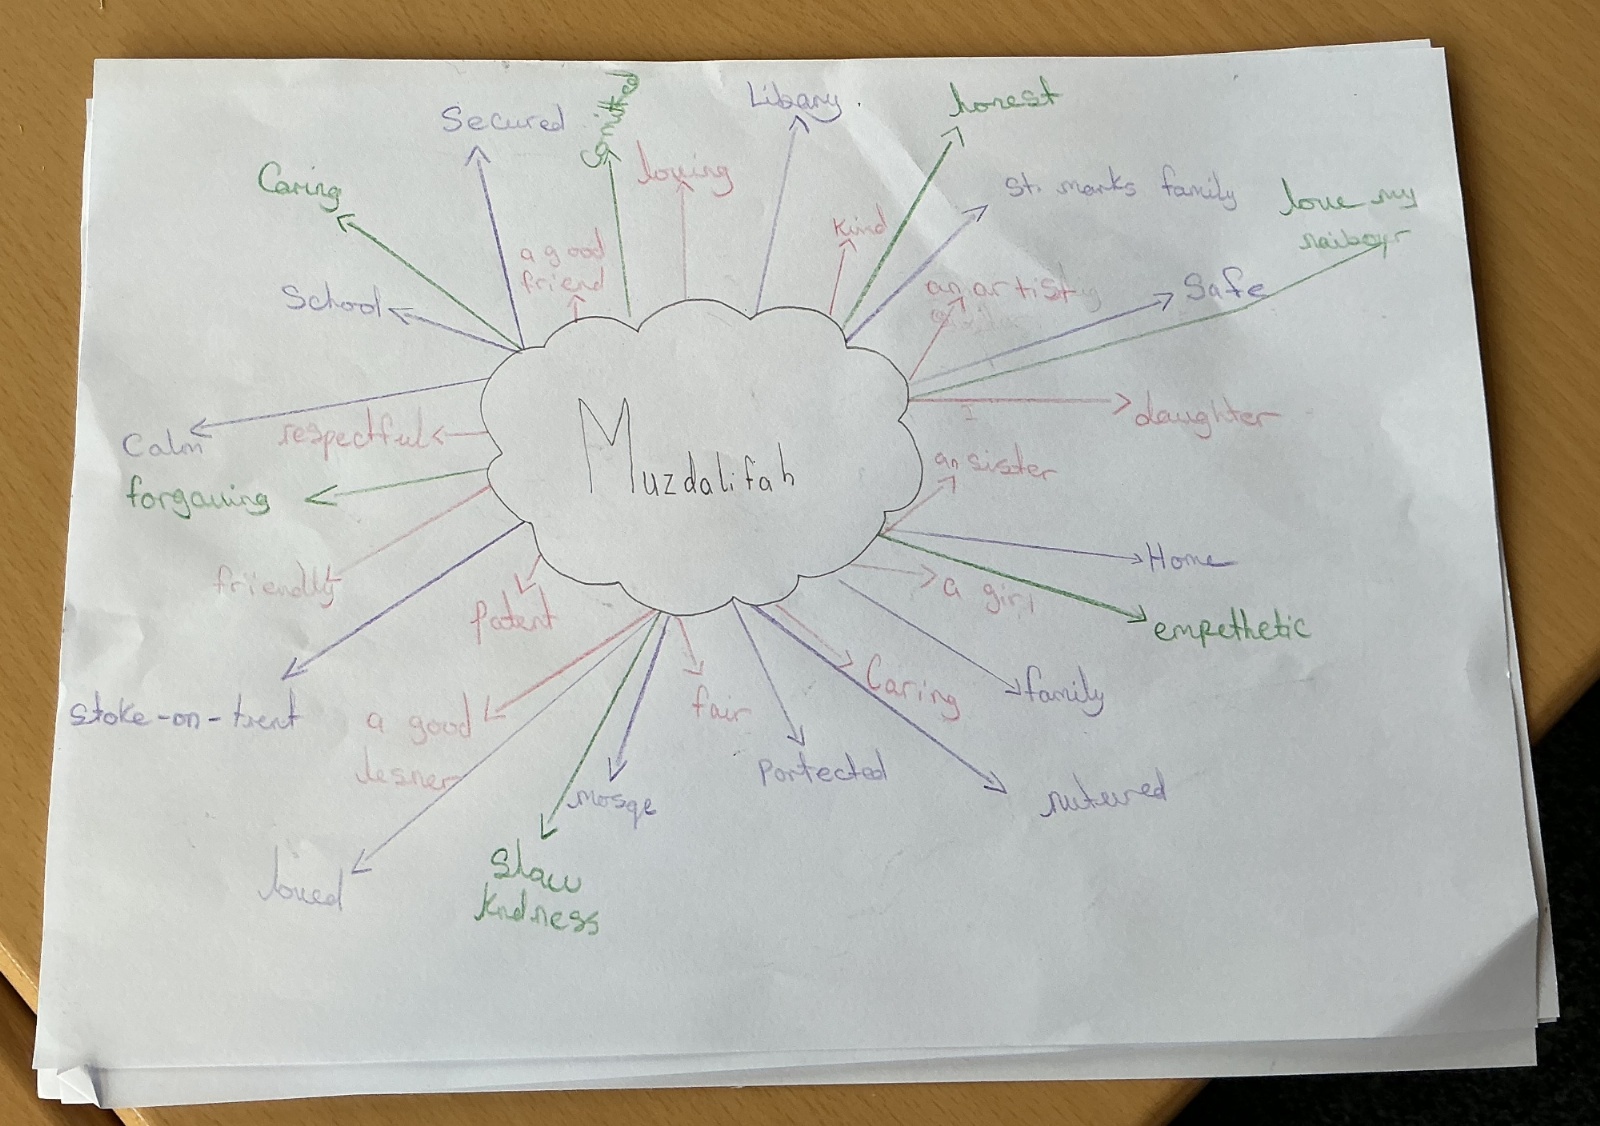 Secured
comitted
Libary
honest
Caring
loving
St. marks family
love my
naiboyr
a good
friend
kind
School
an artist
Safe
Calm
respectful
daughter
Muzdalifah
an sister
forgauing
Home
friendly
patent
a girl
empethetic
stoke-on-trent
a good
lesner
fair
Caring
family
Portected
mosqe
nutured
loved
Show
kndness